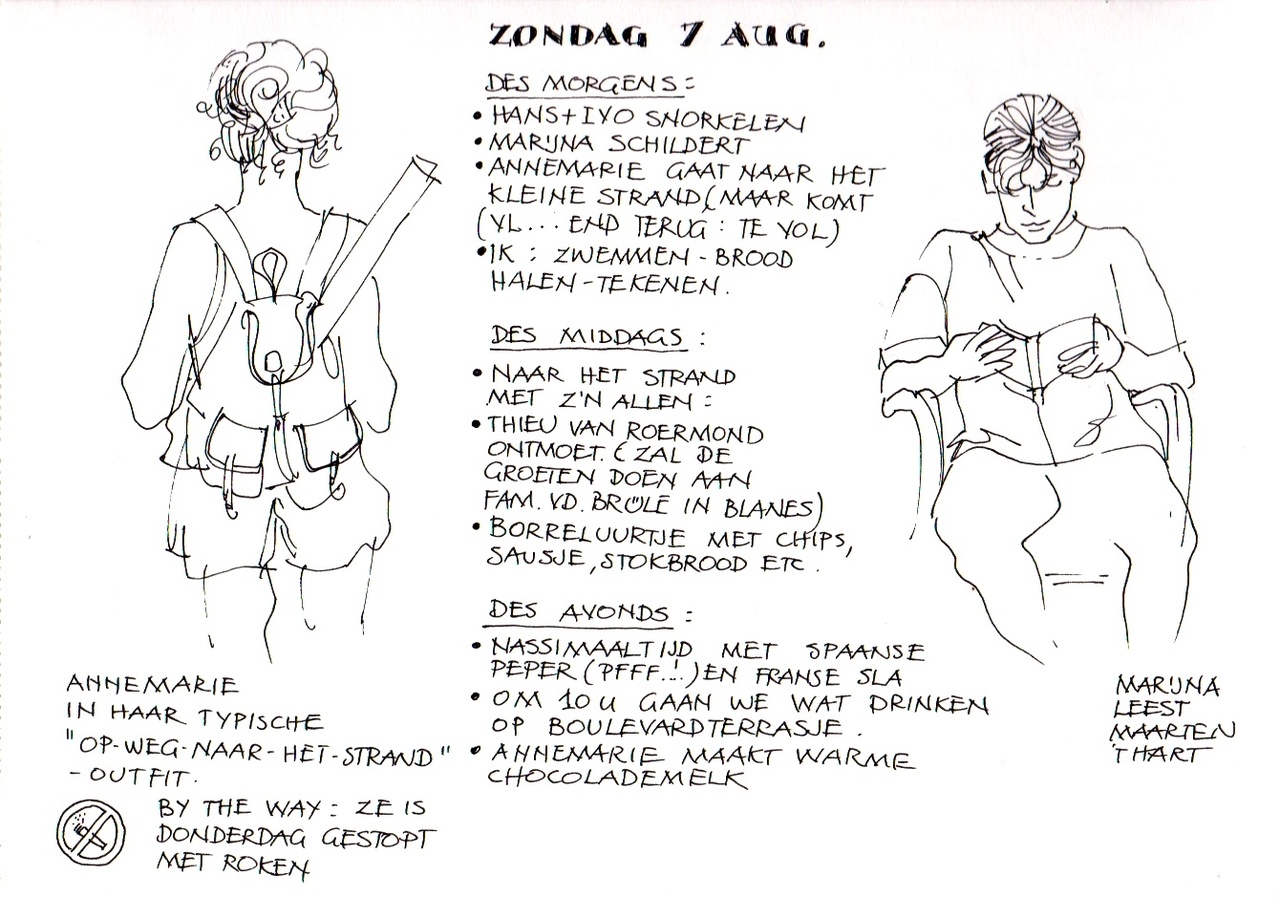 ZONDAG 7 AUG.
DES MORGENS:
• HANS + IVO SNORKELEN
• MARIJNA SCHILDERT
• ANNEMARIE GAAT NAAR HET
KLEINE STRAND (MAAR KOMT
(VL...END TERUG: TE VOL)
• IK: ZWEMMEN - BROOD
HALEN - TEKENEN.
DES MIDDAGS:
• NAAR HET STRAND
MET Z'N ALLEN:
• THIEU VAN ROERMOND
ONTMOET. (ZAL DE
GROETEN DOEN AAN
FAM. VD. BRÜLE IN BLANES)
• BORRELUURTJE MET CHIPS,
SAUSJE, STOKBROOD ETC.
DES AVONDS:
• NASSIMAALTIJD MET SPAANSE
PEPER (PFFF..!) EN FRANSE SLA
• OM 10 U GAAN WE WAT DRINKEN
OP BOULEVARDTERRASJE.
• ANNEMARIE MAAKT WARME
CHOCOLADEMELK
ANNEMARIE
IN HAAR TYPISCHE
"OP-WEG-NAAR-HET-STRAND"
- OUTFIT.
BY THE WAY: ZE IS
DONDERDAG GESTOPT
MET ROKEN
MARIJNA
LEEST
MAARTEN
'T HART